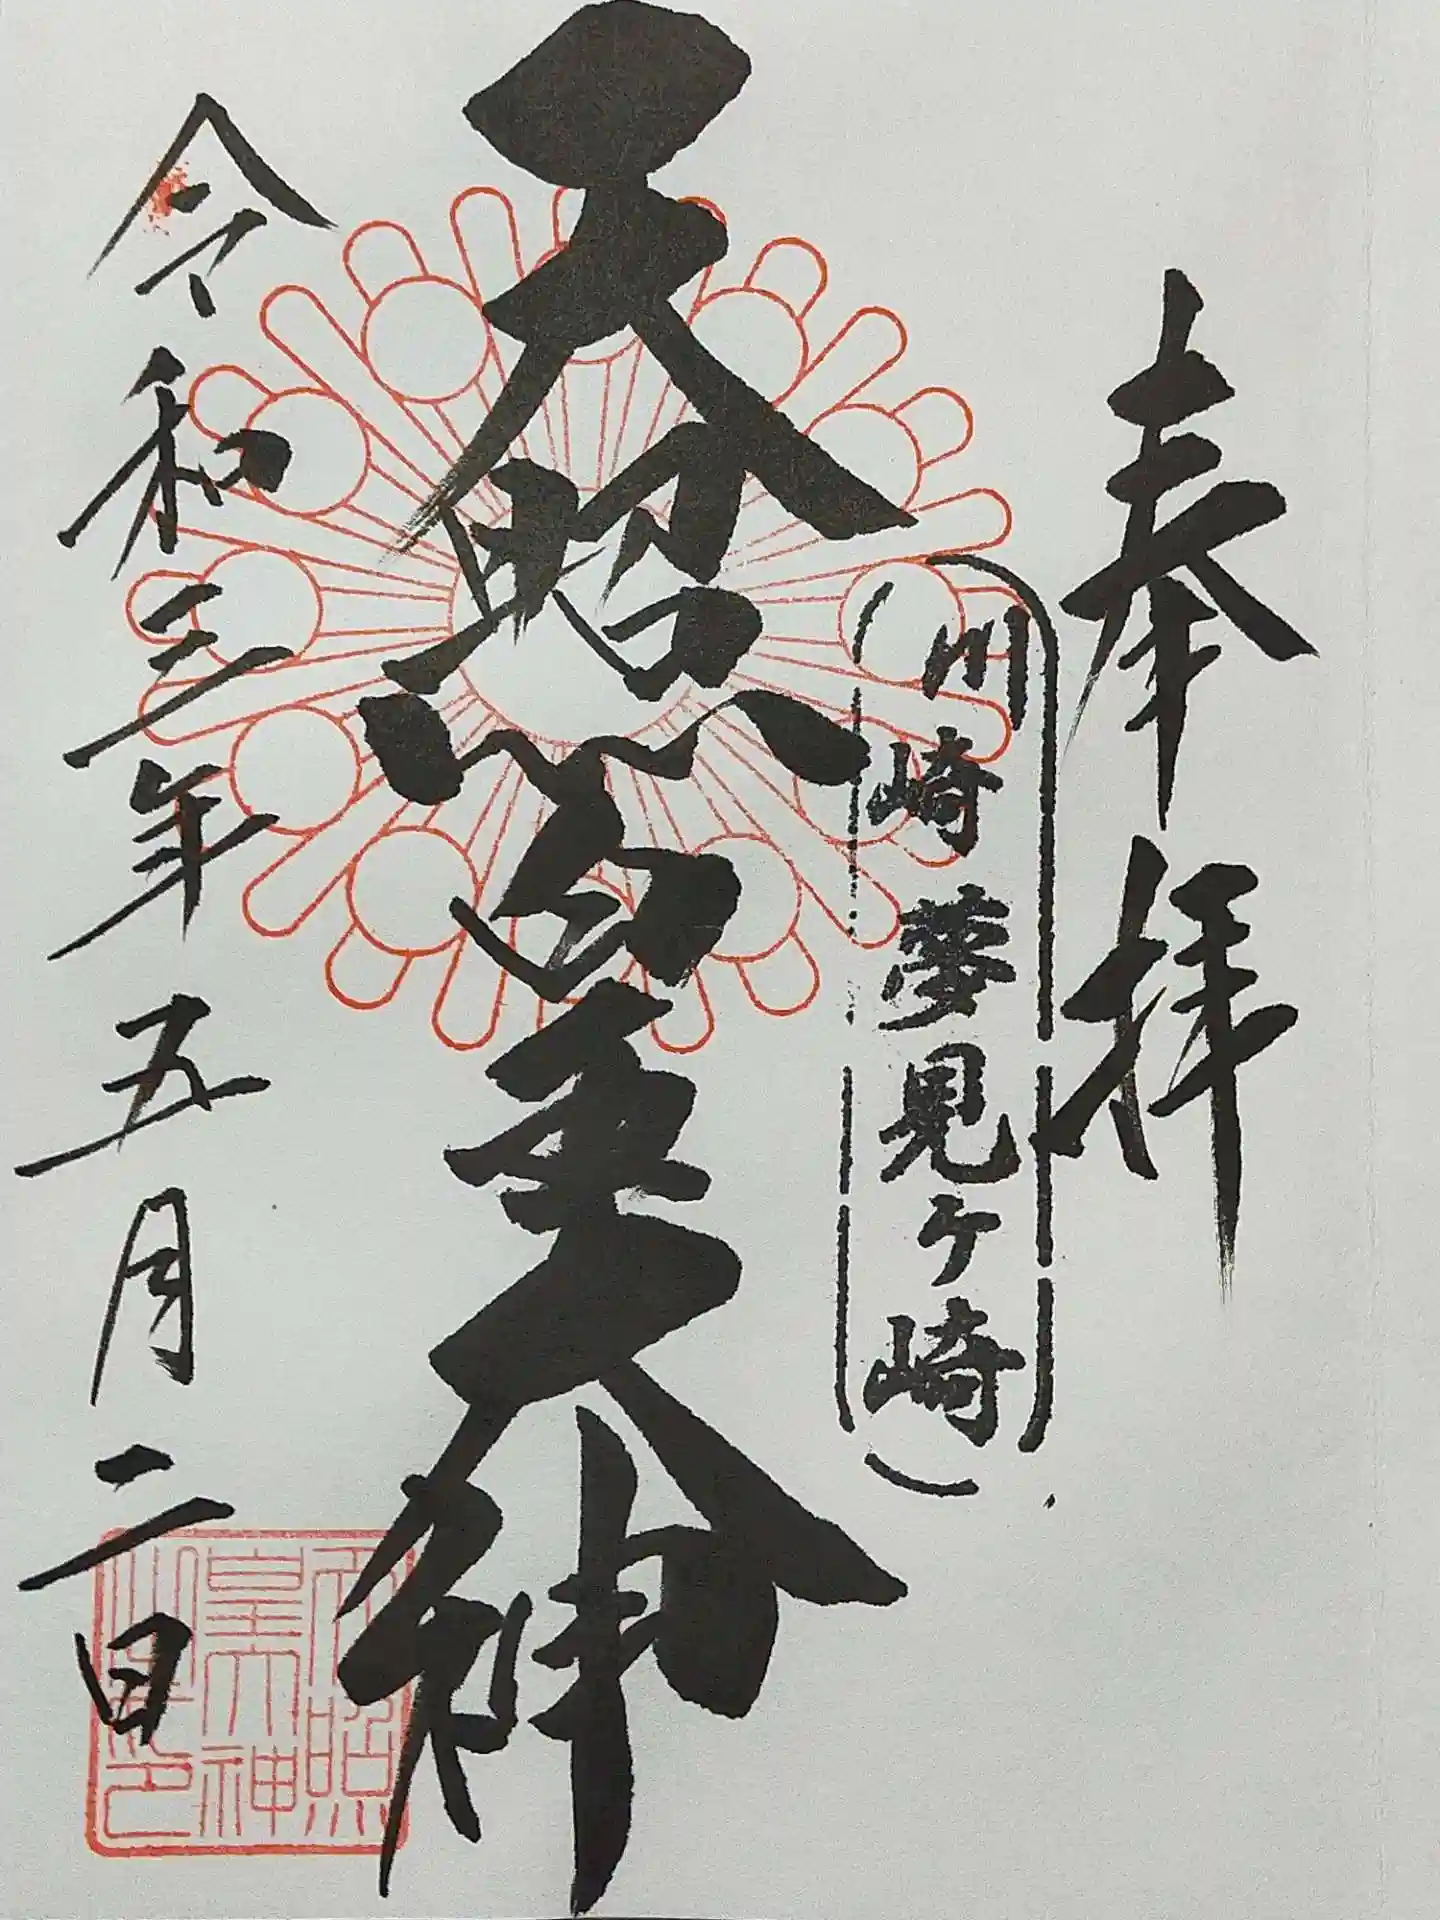 奉拝
川崎夢見ヶ崎
天照皇大神
令和三年五月二日
天照
皇大神